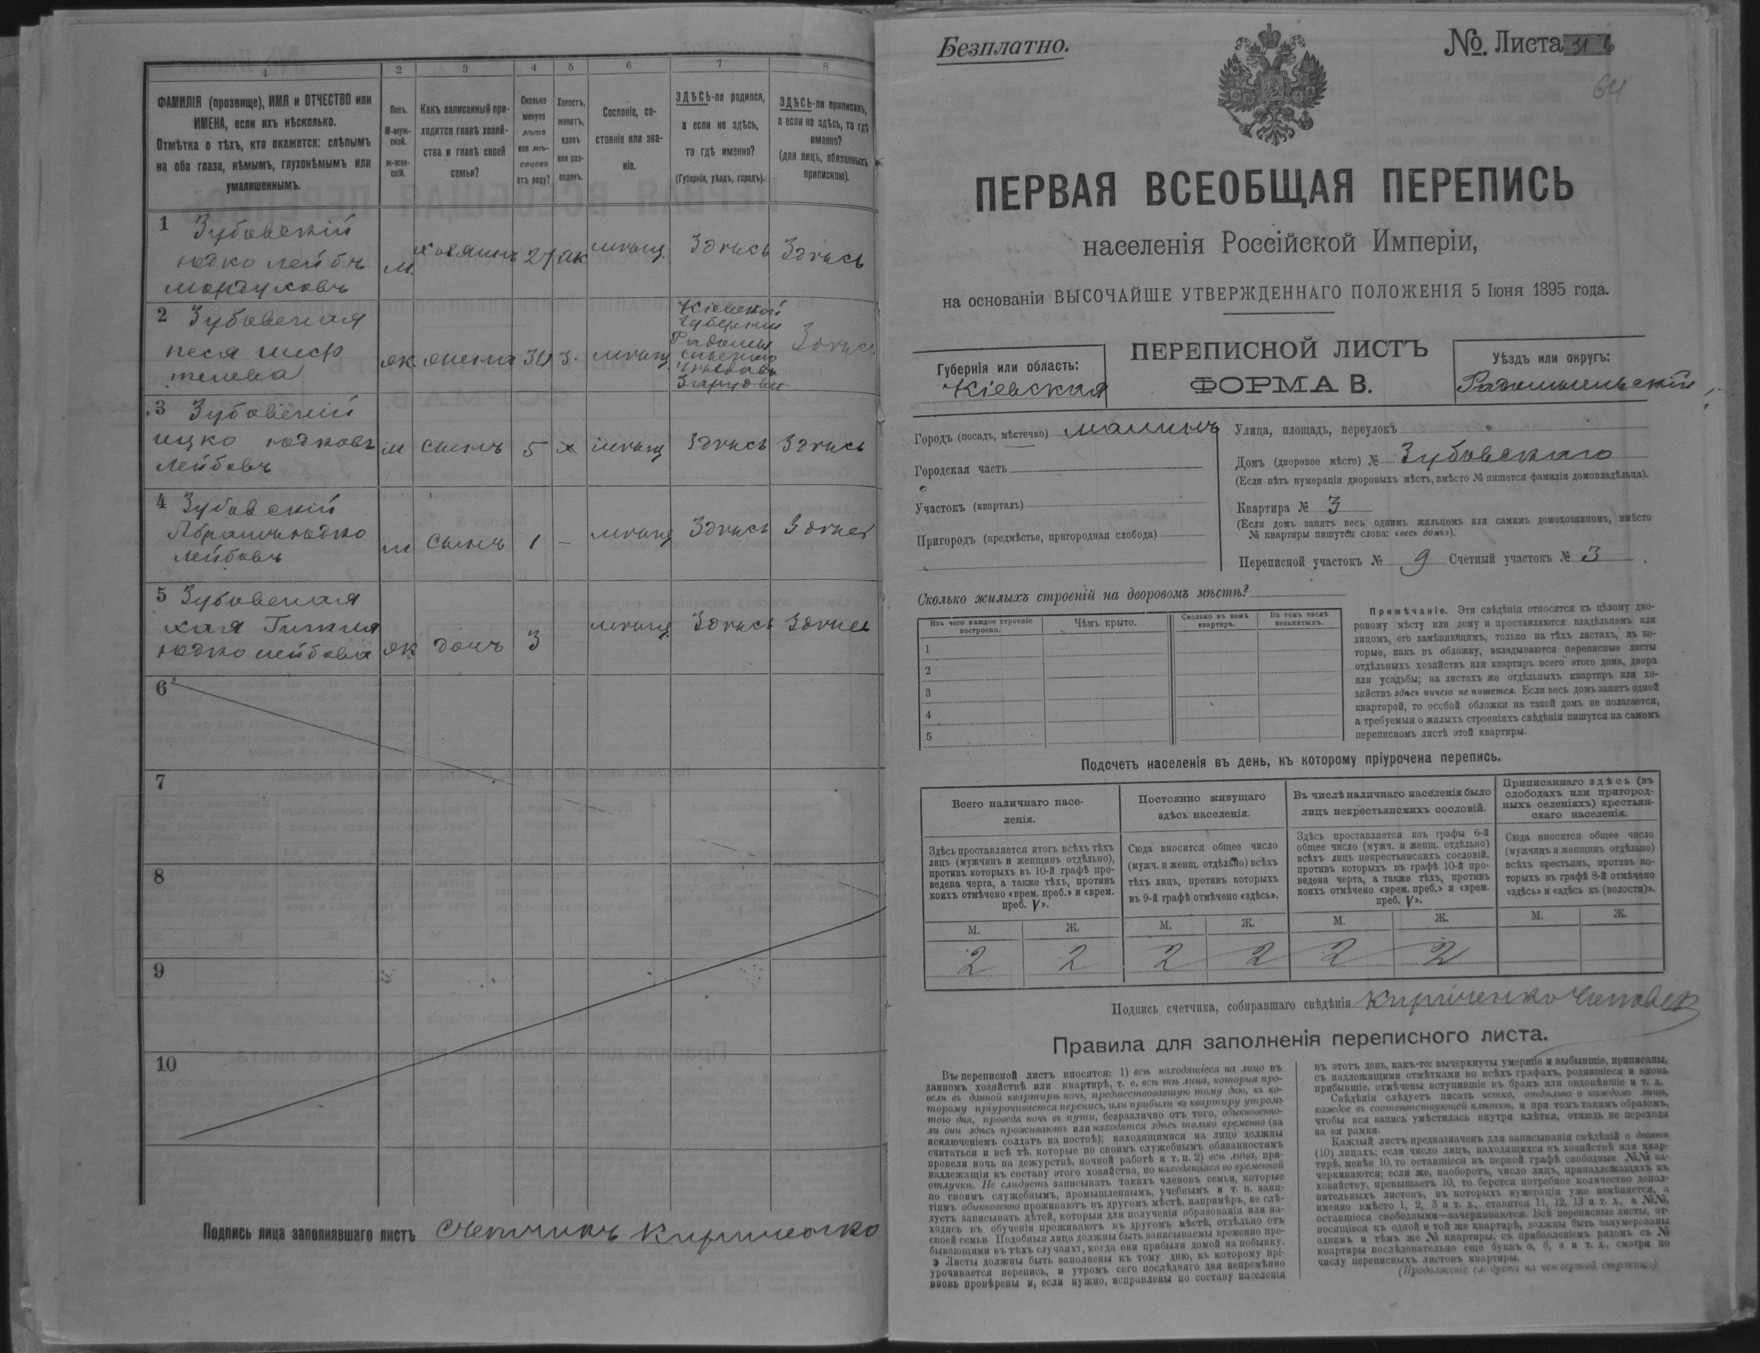 1 2 3 4 5 6 7 8
ФАМИЛІЯ (прозвище), ИМЯ и ОТЧЕСТВО или
ИМЕНА, если ихъ нѣсколько.
Отмѣтка о тѣхъ, кто окажется: слѣпымъ
на оба глаза, нѣмымъ, глухонѣмымъ или
умалишеннымъ.
Полъ.
М-муж-
ской.
ж-жен-
скій.
Какъ записанный при-
ходится главѣ хозяй-
ства и главѣ своей
семьи?
Сколько
минуло
лѣтъ
или мѣ-
сяцевъ
отъ роду?
Холостъ,
женатъ,
вдовъ
или раз-
веденъ.
Сословіе, со-
стояніе или зва-
ніе.
ЗДѢСЬ-ли родился,
а если не здѣсь,
то гдѣ именно?
(Губернія, уѣздъ, городъ).
ЗДѢСЬ-ли приписанъ,
а если не здѣсь, то гдѣ
именно?
(для лицъ, обязанныхъ
припискою).
1 Зубовскій
Юдко Лейбъ
Мордуховъ
м хозяинъ 27 мѣщ Здѣсь Здѣсь
2 Зубовская
Песя
жена мѣщ Здѣсь
Кіевской
Губерніи
3 Зубовскій
Ицко Юдковъ
Лейбовъ
м сынъ 5 х мѣщ Здѣсь Здѣсь
4 Зубовскій
Абрамъ Юдко
Лейбовъ
м сынъ 1 – мѣщ Здѣсь Здѣсь
5 Зубовская
Хая
Юдко Лейбова
дочь 3 мѣщ Здѣсь Здѣсь
6
7
8
9
10
Подпись лица заполнявшаго листъ Счетчикъ Кириченко
Безплатно.
№. Листа
64
ПЕРВАЯ ВСЕОБЩАЯ ПЕРЕПИСЬ
населенія Россійской Имперіи,
на основаніи ВЫСОЧАЙШЕ УТВЕРЖДЕННАГО ПОЛОЖЕНІЯ 5 Іюня 1895 года.
Губернія или область:
Кіевская
ПЕРЕПИСНОЙ ЛИСТЪ
ФОРМА В.
Уѣздъ или округъ:
Радомысльскій
Городъ (посадъ, мѣстечко) Малинъ
Городская часть
Участокъ (кварталъ)
Пригородъ (предмѣстье, пригородная слобода)
Улица, площадь, переулокъ
Домъ (дворовое мѣсто) № Зубовскаго
(Если нѣтъ нумераціи дворовыхъ мѣстъ, вмѣсто № пишется фамилія домовладѣльца).
Квартира № 3
(Если домъ занятъ весь однимъ жильцомъ или самимъ домохозяиномъ, вмѣсто
№ квартиры пишутся слова: «весь домъ»).
Переписной участокъ № 9 Счетный участокъ № 3.
Сколько жилыхъ строеній на дворовомъ мѣстѣ?
Изъ чего каждое строеніе
построено.
Чѣмъ крыто.
Сколько въ немъ
квартиръ.
Въ томъ числѣ
незанятыхъ.
1
2
3
4
5
Примѣчаніе. Эти свѣдѣнія относятся къ цѣлому дво-
ровому мѣсту или дому и проставляются владѣльцемъ или
лицомъ, его замѣняющимъ, только на тѣхъ листахъ, въ ко-
торые, какъ въ обложку, вкладываются переписные листы
отдѣльныхъ хозяйствъ или квартиръ всего этого дома, двора
или усадьбы; на листахъ же отдѣльныхъ квартиръ или хо-
зяйствъ здѣсь ничего не пишется. Если весь домъ занятъ одной
квартирой, то особой обложки на такой домъ не полагается,
а требуемыя о жилыхъ строеніяхъ свѣдѣнія пишутся на самомъ
переписномъ листѣ этой квартиры.
Подсчетъ населенія въ день, къ которому пріурочена перепись.
Всего наличнаго насе-
ленія.
Постоянно живущаго
здѣсь населенія.
Въ числѣ наличнаго населенія было
лицъ некрестьянскихъ сословій.
Приписаннаго здѣсь (въ
слободахъ или пригород-
ныхъ селеніяхъ) крестьян-
скаго населенія.
Здѣсь проставляется итогъ всѣхъ тѣхъ
лицъ (мужчинъ и женщинъ отдѣльно),
противъ которыхъ въ 10-й графѣ про-
ведена черта, а также тѣхъ, противъ
коихъ отмѣчено «врем. преб.» и «врем.
преб. V».
Сюда вносится общее число
(мужч. и женщ. отдѣльно) всѣхъ
тѣхъ лицъ, противъ которыхъ
въ 9-й графѣ отмѣчено «здѣсь».
Здѣсь проставляется изъ графы 6-й
общее число (мужч. и женщ. отдѣльно)
всѣхъ лицъ некрестьянскихъ сословій,
противъ которыхъ въ графѣ 10-й про-
ведена черта, а также тѣхъ, противъ
коихъ отмѣчено «врем. преб.» и «врем.
преб. V».
Сюда вносится общее число
(мужчинъ и женщинъ отдѣльно)
всѣхъ крестьянъ, противъ ко-
торыхъ въ графѣ 8-й отмѣчено
«здѣсь» и «здѣсь къ (волости)».
М. Ж. М. Ж. М. Ж. М. Ж.
2 2 2 2 2 2
Подпись счетчика, собиравшаго свѣдѣнія Кириченко
Правила для заполненія переписного листа.
Въ переписной листъ вносятся: 1) всѣ находящіеся на лицо въ
данномъ хозяйствѣ или квартирѣ, т. е. всѣ тѣ лица, которыя про-
вели въ данной квартирѣ ночь, предшествовавшую тому дню, къ ко-
торому пріурочивается перепись, или прибыли въ квартиру утромъ
того дня, проведя ночь въ пути, безразлично отъ того, обыкновенно-
ли они здѣсь проживаютъ или находятся здѣсь только временно (за
исключеніемъ солдатъ на постоѣ); находящимися на лицо должны
считаться и всѣ тѣ, которые по своимъ служебнымъ обязанностямъ
провели ночь на дежурствѣ, ночной работѣ и т. п. 2) всѣ лица, при-
надлежащія къ составу этого хозяйства, но находящіяся во временной
отлучкѣ. Не слѣдуетъ записывать такихъ членовъ семьи, которые
по своимъ служебнымъ, промышленнымъ, учебнымъ и т. п. заня-
тіямъ обыкновенно проживаютъ въ другомъ мѣстѣ, напримѣръ, не слѣ-
дуетъ записывать дѣтей, которыя для полученія образованія или на-
ходясь въ обученіи проживаютъ въ другомъ мѣстѣ, отдѣльно отъ
своей семьи. Подобныя лица должны быть записываемы временно пре-
бывающими въ тѣхъ случаяхъ, когда они прибыли домой на побывку.
Листы должны быть заполнены къ тому дню, къ которому прі-
урочивается перепись, и утромъ сего послѣдняго дня непремѣнно
вновь провѣрены и, если нужно, исправлены по составу населенія
въ этотъ день, какъ-то: вычеркнуты умершіе и выбывшіе, приписаны,
съ надлежащими отмѣтками во всѣхъ графахъ, родившіеся и вновь
прибывшіе, отмѣчены вступившіе въ бракъ или овдовѣвшіе и т. д.
Свѣдѣнія слѣдуетъ писать четко, отдѣльно о каждомъ лицѣ,
каждое въ соотвѣтствующей клѣткѣ, и при томъ такимъ образомъ,
чтобы вся запись умѣстилась внутри клѣтки, отнюдь не переходя
за ея рамки.
Каждый листъ предназначенъ для записыванія свѣдѣній о десяти
(10) лицахъ; если число лицъ, находящихся въ хозяйствѣ или квар-
тирѣ, менѣе 10, то оставшіеся въ первой графѣ свободные №№ за-
черкиваются; если же, наоборотъ, число лицъ, принадлежащихъ къ
хозяйству, превышаетъ 10, то берется потребное количество допол-
нительныхъ листовъ, въ которыхъ нумерація уже измѣняется, а
именно вмѣсто 1, 2, 3 и т. д., ставится 11, 12, 13 и т. д., а №№,
оставшіеся свободными—зачеркиваются. Всѣ переписные листы, от-
носящіеся къ одной и той же квартирѣ, должны быть занумерованы
однимъ и тѣмъ же № квартиры, съ прибавленіемъ рядомъ съ №
квартиры послѣдовательно еще буквъ а, б, в и т. д., смотря по
числу переписныхъ листовъ квартиры.
(Продолженіе см. здѣсь на четвертой страницѣ)